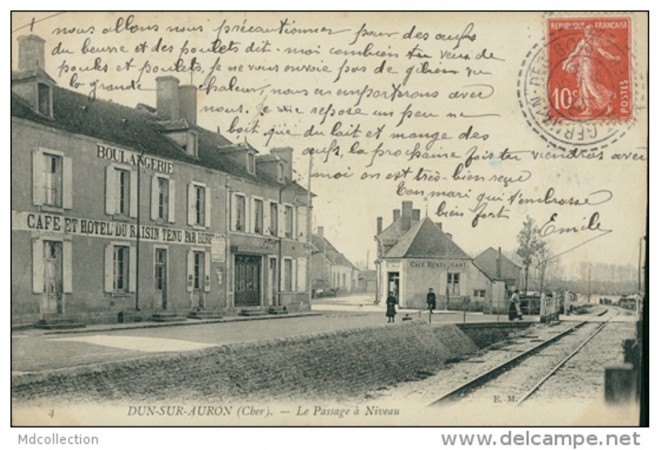 nous allons nous précautionner pour des œufs
du beurre et des poulets dit-moi combien tu veux de
poules et poulets, je ne vous envoie pas de gibier vu
la grande chaleur, nous en emporterons avec
nous. Je me repose un peu ne
boit que du lait et mange des
œufs, la prochaine fois tu viendras avec
moi on est très-bien reçu
Ton mari qui t'embrasse
bien fort Emile
10c
POSTES
BOULANGERIE
CAFE ET HOTEL DU RAISIN TENU PAR
CAFE RESTAURANT
4 DUN-SUR-AURON (Cher). - Le Passage à Niveau
E. M.
Mdcollection
www.delcampe.net